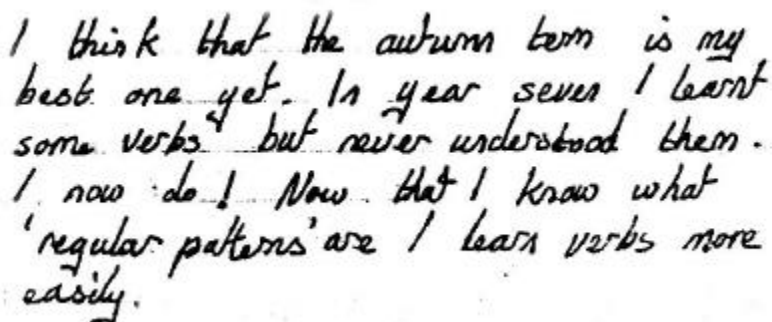 I think that the autumn term is my
best one yet. In year seven I learnt
some verbs but never understood them.
I now do! Now that I know what
'regular patterns' are I learn verbs more
easily.